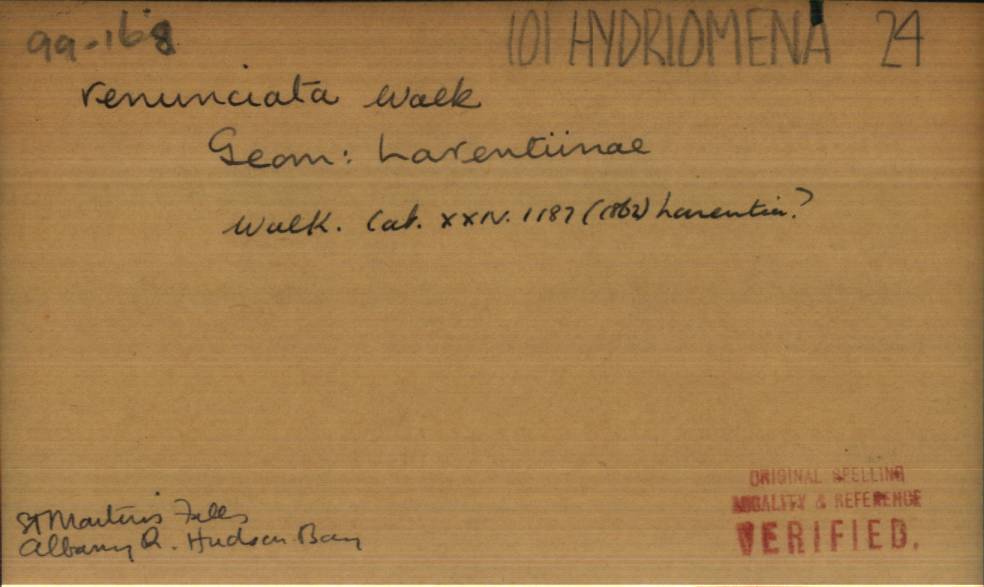 99-168
101 HYDRIOMENA 24
renunciata Walk
Geom: Larentiinae
Walk. Cat. XXIV. 1187 (1862) Larentia?
ORIGINAL SPELLING
LOCALITY & REFERENCE
VERIFIED.
St Martin's Falls
Albany R. Hudson Bay